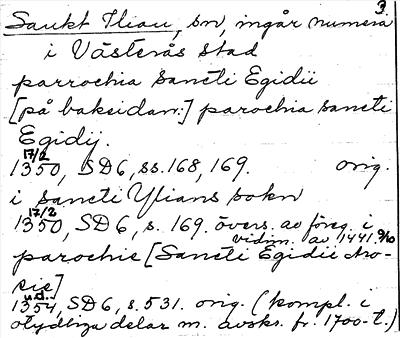 3.
Sankt Ilian, sn, ingår numera
i Västerås stad
parrochia sancti Egidii
[på baksidan:] parochia sancti
Egidij.
17/2
1350, SD6, ss. 168, 169. orig.
i sancti Ylians sokn
17/2
1350, SD6, s. 169. övers. av föreg. i
vidim. av 1441 9/10
parochie [Sancti Egidii Aro-
sie]
u.d.
1354, SD6, s. 531. orig. (kompl. i
otydliga delar m. avskr. fr. 1700-t.)